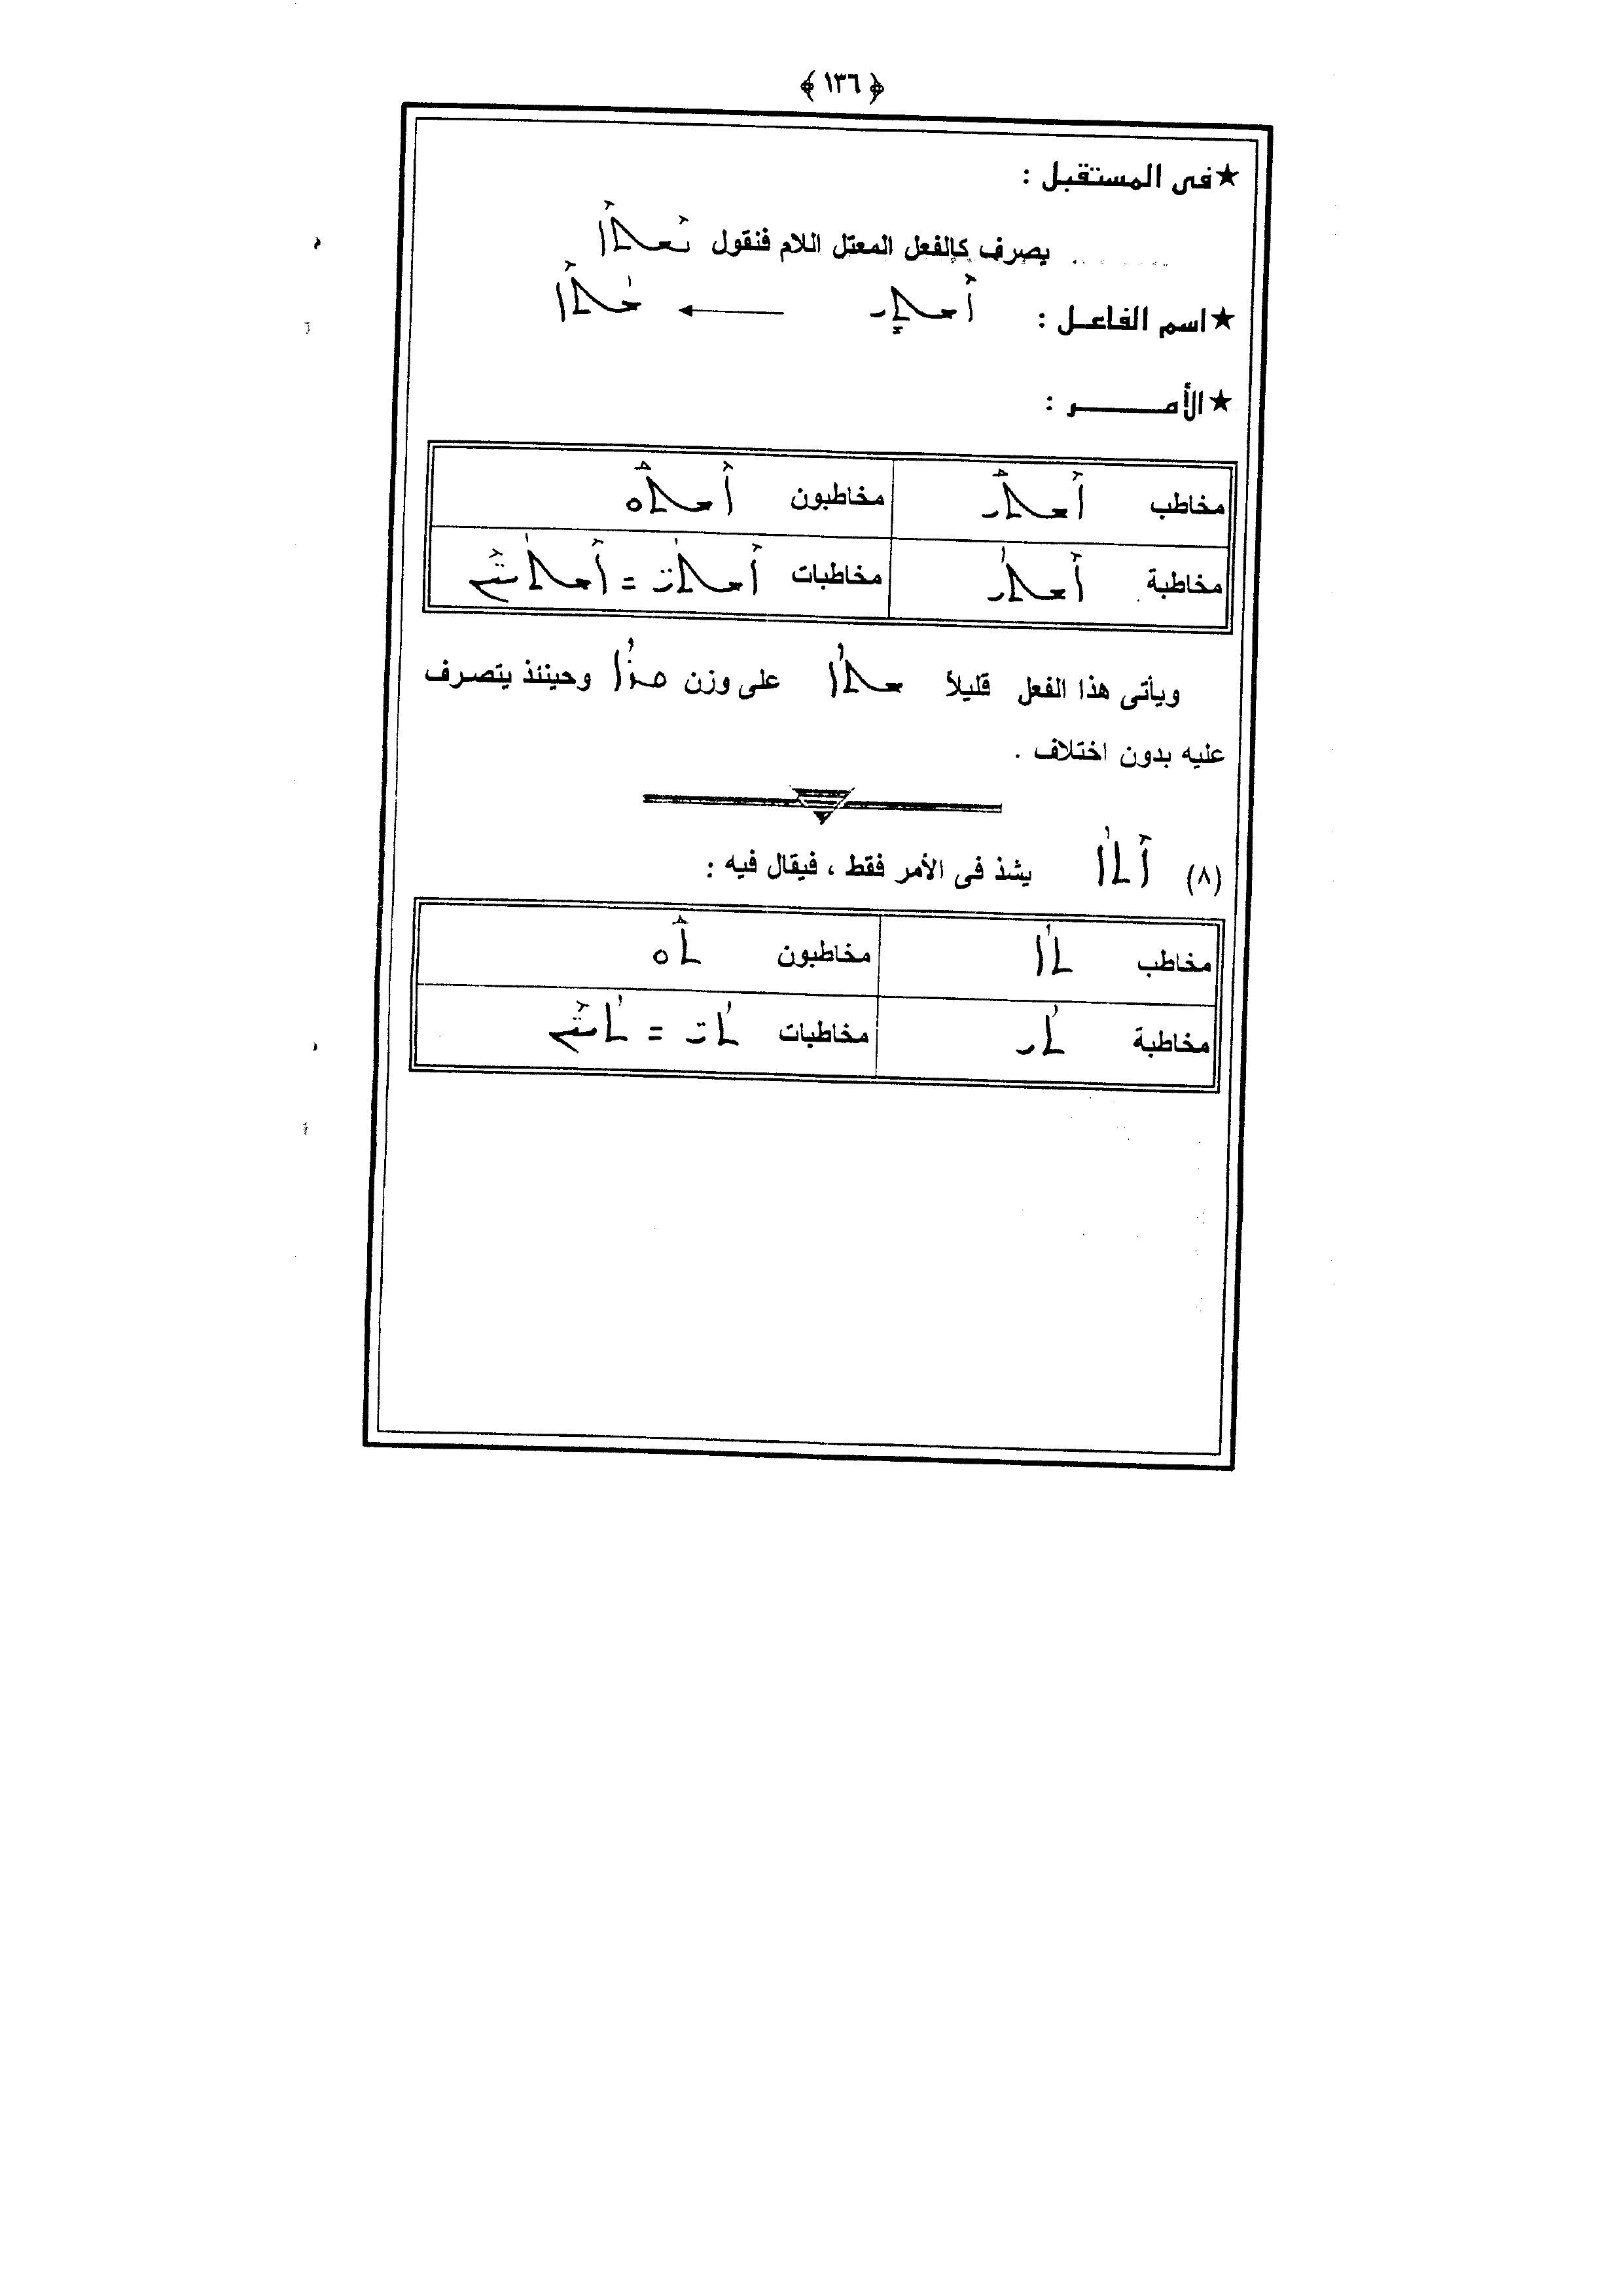 ﴿ ١٣٦ ﴾
★ فى المستقبل :
يصرف كالفعل المعتل اللام فنقول ܢܶܫܬܶܐ
★ اسم الفاعل : ܐܶܫܬܺܝ ← ܫܳܬܶܐ
★ الأمـــــر :
مخاطب ܐܶܫܬܰܝ مخاطبون ܐܶܫܬܰܘ
مخاطبة ܐܶܫܬܳܝ مخاطبات ܐܶܫܬܳܝ̈ܢ = ܐܶܫܬܳܝ̈ܶܝܢ
ويأتى هذا الفعل قليلاً ܫܬܳܐ على وزن ܩܪܳܐ وحينئذ يتصرف
عليه بدون اختلاف .
(٨) ܐܶܬܳܐ يشذ فى الأمر فقط ، فيقال فيه :
مخاطب ܬܳܐ مخاطبون ܬܰܘ
مخاطبة ܬܳܝ مخاطبات ܬܳܝ̈ܢ = ܬܳܝ̈ܶܝܢ